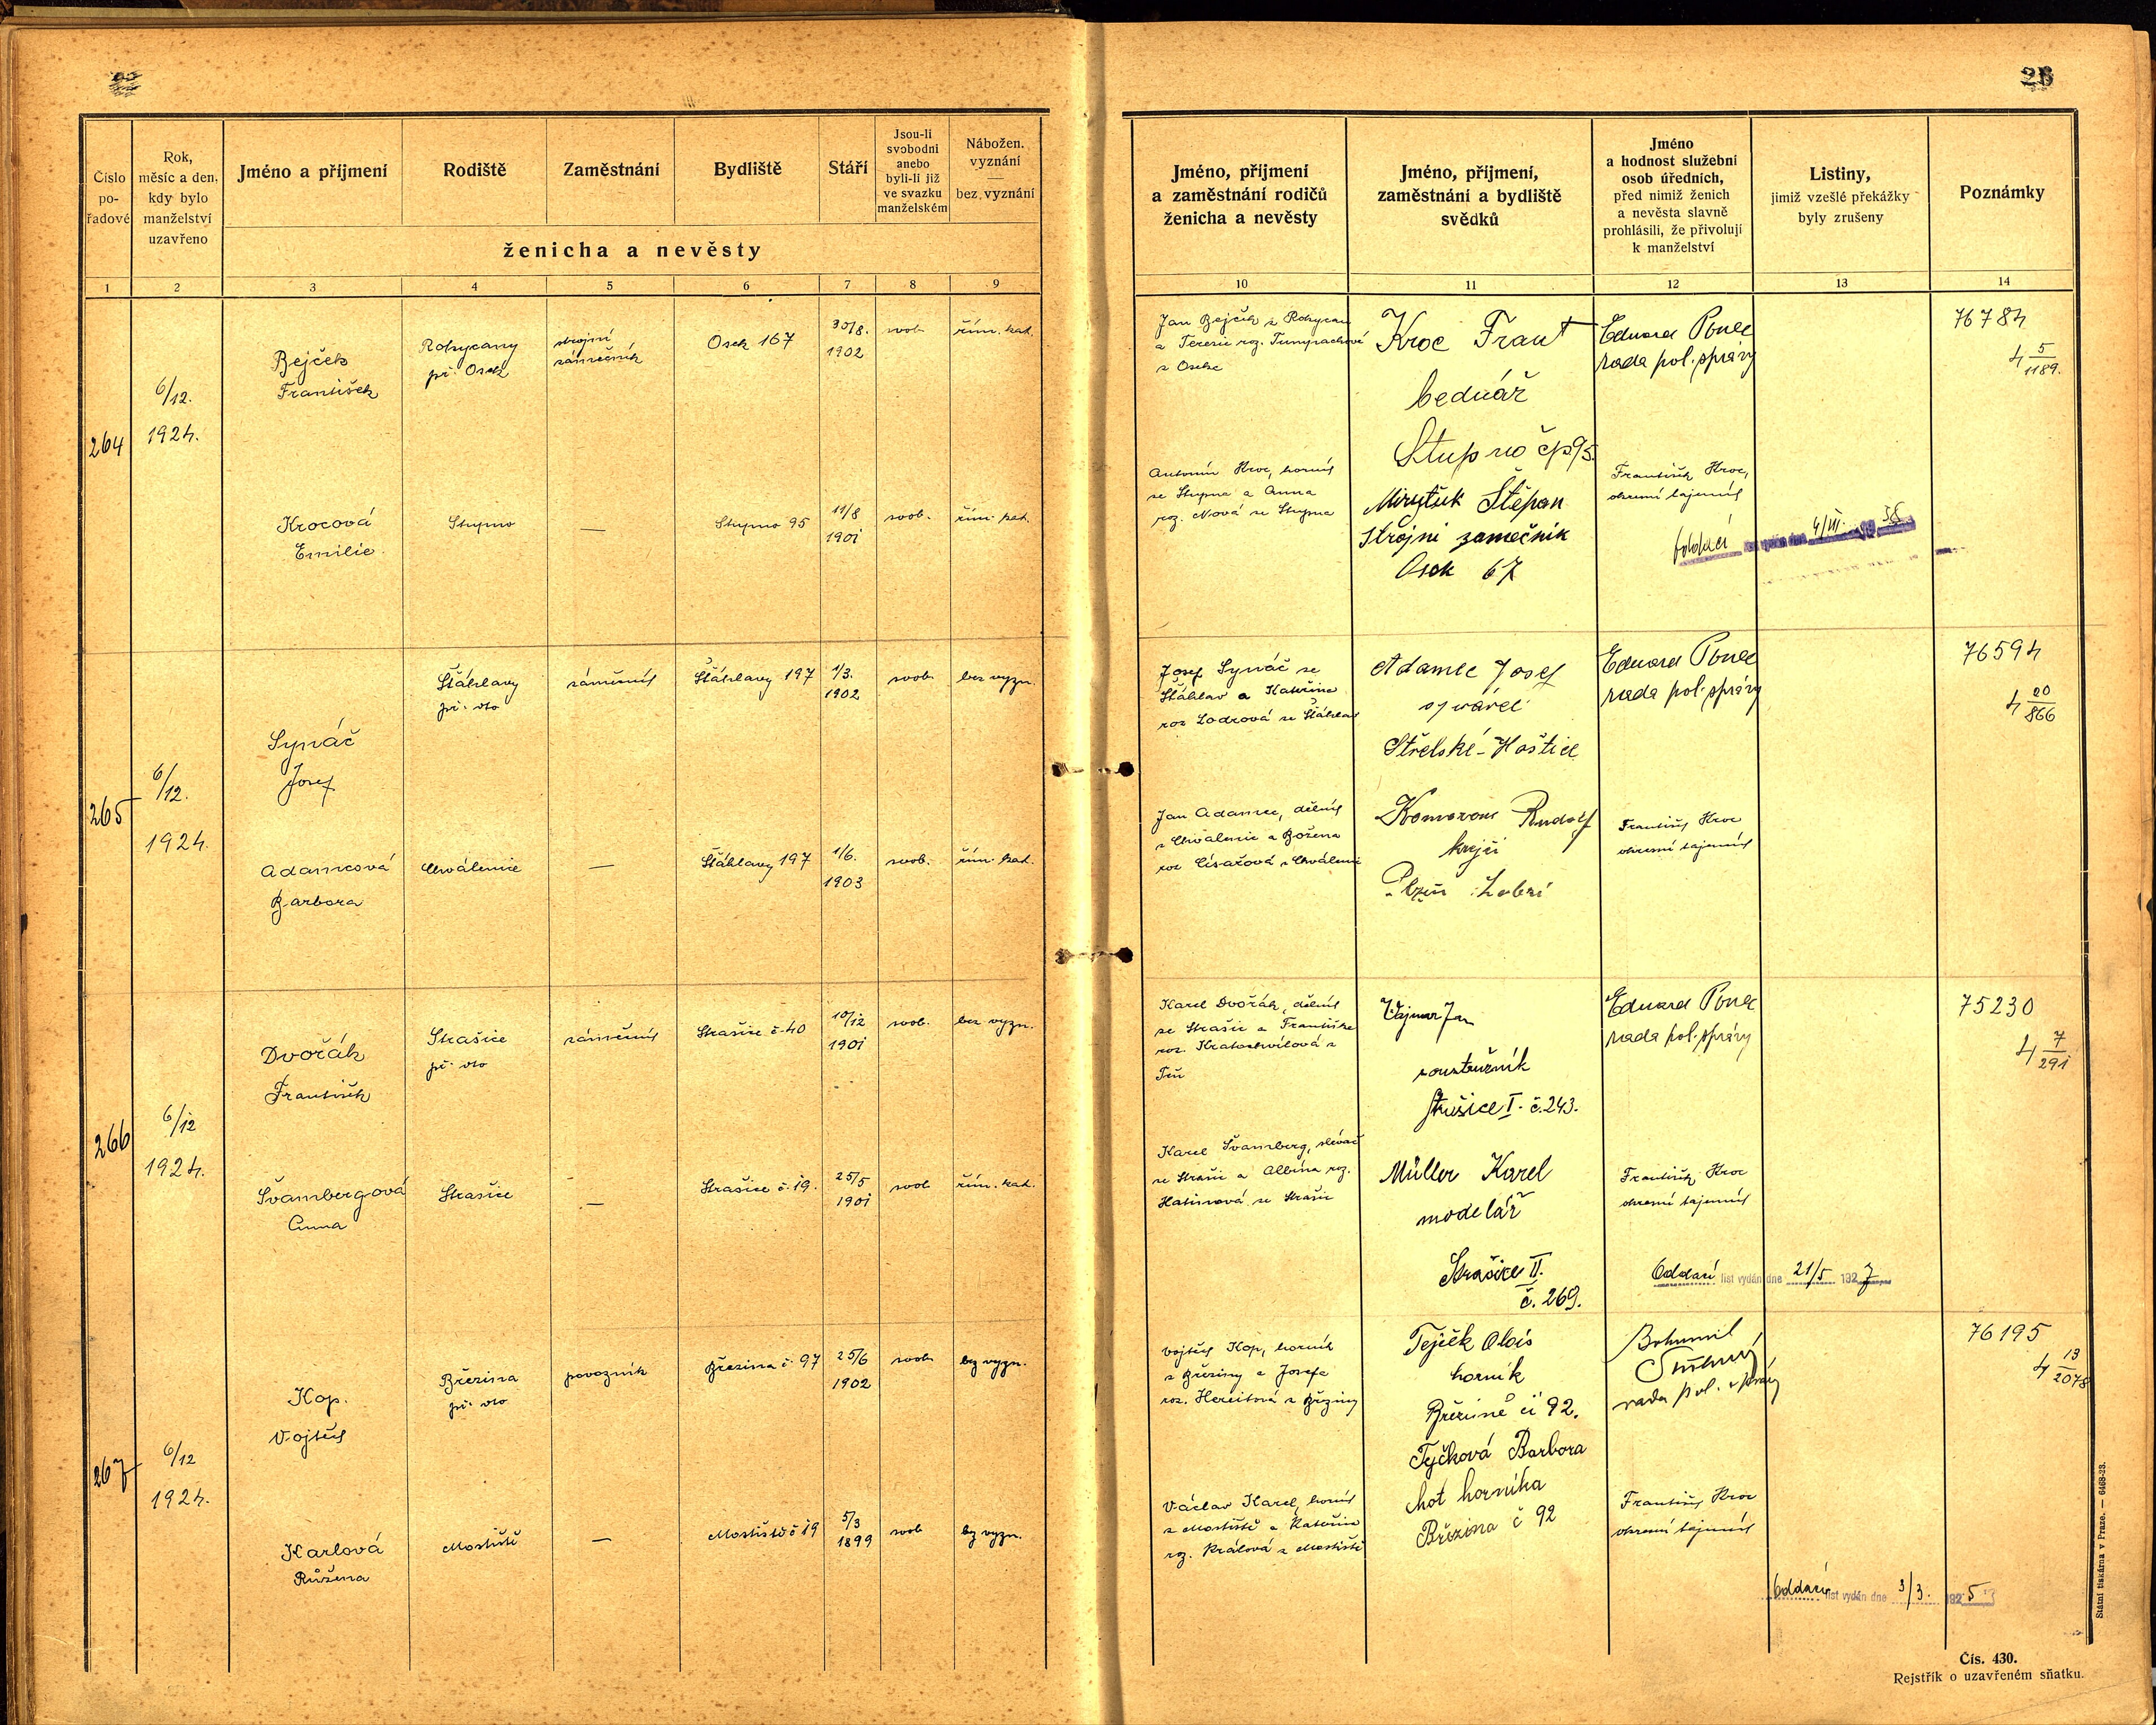 26
Číslo
po-
řadové
Rok,
měsíc a den,
kdy bylo
manželství
uzavřeno
Jméno a příjmení
Rodiště
Zaměstnání
Bydliště
Stáří
Jsou-li
svobodni
anebo
byli-li již
ve svazku
manželském
Nábožen.
vyznání
bez vyznání
ženicha a nevěsty
Jméno, příjmení
a zaměstnání rodičů
ženicha a nevěsty
Jméno, příjmení,
zaměstnání a bydliště
svědků
Jméno
a hodnost služební
osob úředních,
před nimiž ženich
a nevěsta slavně
prohlásili, že přivolují
k manželství
Listiny,
jimiž vzešlé překážky
byly zrušeny
Poznámky
1 2 3 4 5 6 7 8 9 10 11 12 13 14
264
6/12.
1924.
Bejček
František
Rokycany
př. Osek
strojní
zámečník
Osek 167
30/8.
1902
svob.
řím. kat.
Jan Bejček z Rokycan
a Terezie roz.
z Oseka
Kroc Frant
bednář
Stupno čp 95.
Eduard Ponec
rada pol. správy
76784
4 5/1189.
Krocová
Emilie.
Stupno
—
Stupno 95
11/8
1901
svob.
řím. kat.
Antonín Kroc, horník
ze Stupna a Anna
roz. Nová ze Stupna
Štěpan
Strojní zamečník
Osek 67
František Kroc,
okresní tajemník
Oddací 4/III. 38
265
6/12.
1924.
Synáč
Josef
Štáhlavy
př. dto
zámečník
Štáhlavy 197
1/3.
1902
svob.
bez vyzn.
Josef Synáč ze
Štáhlav a Kateřina
roz Lodrová ze Štáhlav
Adamec Josef
Střelské-Hoštice
Eduard Ponec
rada pol. správy
76594
4 20/866
Adamcová
Barbora
Chválenice
—
Štáhlavy 197
1/6.
1903
svob.
řím. kat.
Jan Adamec, dělník
z Chválenic a Božena
roz Císařová z Chválenic
Rudolf
krejčí
Plzeň Lobzi
František Kroc
okresní tajemník
266
6/12
1924.
Dvořák
František
Strašice
př. dto
zámečník
Strašice č. 40
10/12
1901
svob.
bez vyzn.
Karel Dvořák, dělník
ze Strašic a Františka
roz. Kratochvílová z
Těň
Vajner Jan
soustružník
Strašice I. č. 243.
Eduard Ponec
rada pol. správy
75230
4 7/291
Švambergová
Anna
Strašice
—
Strašice č. 19.
25/5
1901
svob
řím. kat.
Karel Švamberg, slévač
ze Strašic a Albína roz.
ze Strašic
Müller Karel
modelář
Strašice II.
č. 269.
František Kroc
okresní tajemník
Oddací list vydán dne 21/5 1927
267
6/12
1924.
Kop.
Vojtěch
Březina
př. dto
povozník
Březina č. 97
25/6
1902
svob
bez vyzn.
Vojtěch Kop, horník
z Březiny a Josefa
roz. z Březiny
Tejček Alois
horník
Březině či 92.
Tyčková Barbora
chot horníka
Březina č 92
Bohumil
rada pol. správy
76195
4 13/2078
Karlová
Růžena
Mostiště
—
Mostiště č 19
5/3
1899
svob
bez vyzn.
Václav Karel, horník
z Mostiště a Kateřina
roz. Králová z Mostiště
František Kroc
okresní tajemník
Oddací list vydán dne 3/3. 1925
Státní tiskárna v Praze. — 6468-23.
Čís. 430.
Rejstřík o uzavřeném sňatku.